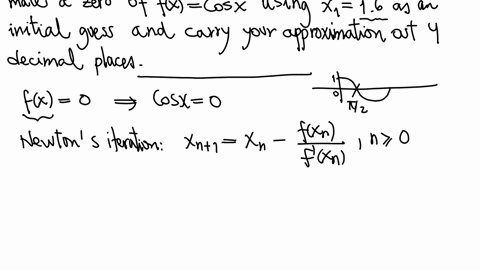 mate a zero of f(x)=Cosx using x₁=1.6 as an
initial guess and carry your approximation out 4
decimal places.
1
0
π/2
f(x)=0 ⟹ Cosx=0
Newton's iteration: xₙ₊₁ = xₙ − f(xₙ)/f'(xₙ) , n⩾0